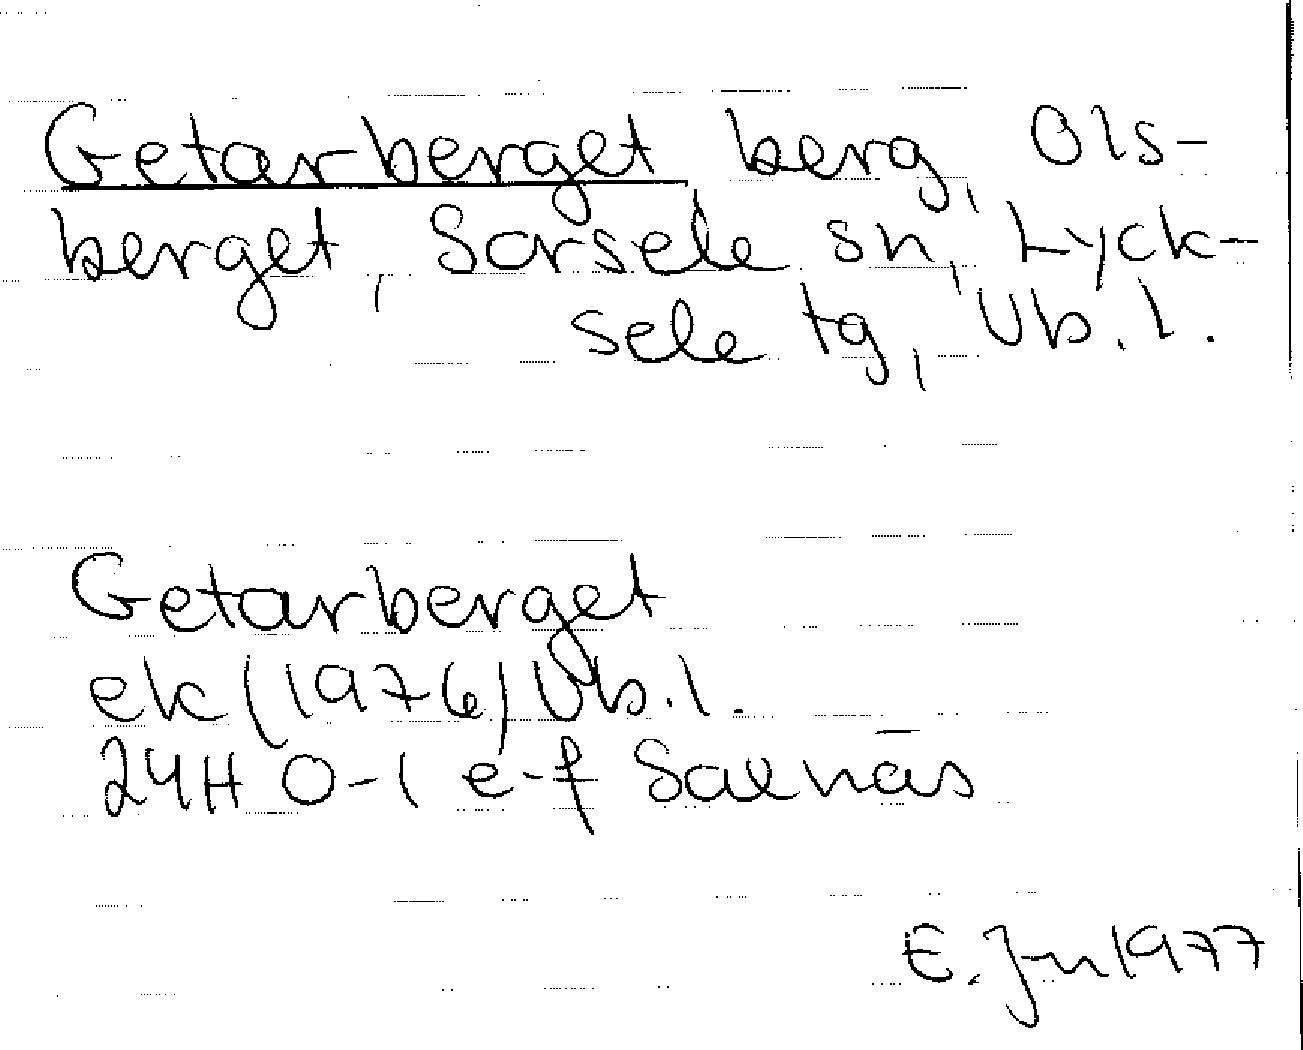 Getarberget berg, Ols-
berget, Sorsele sn, Lyck-
sele tg, Vb. l.
Getarberget
ek (1976) Vb. l.
24H 0-1 e-f Saxnäs
E. Jn 1977